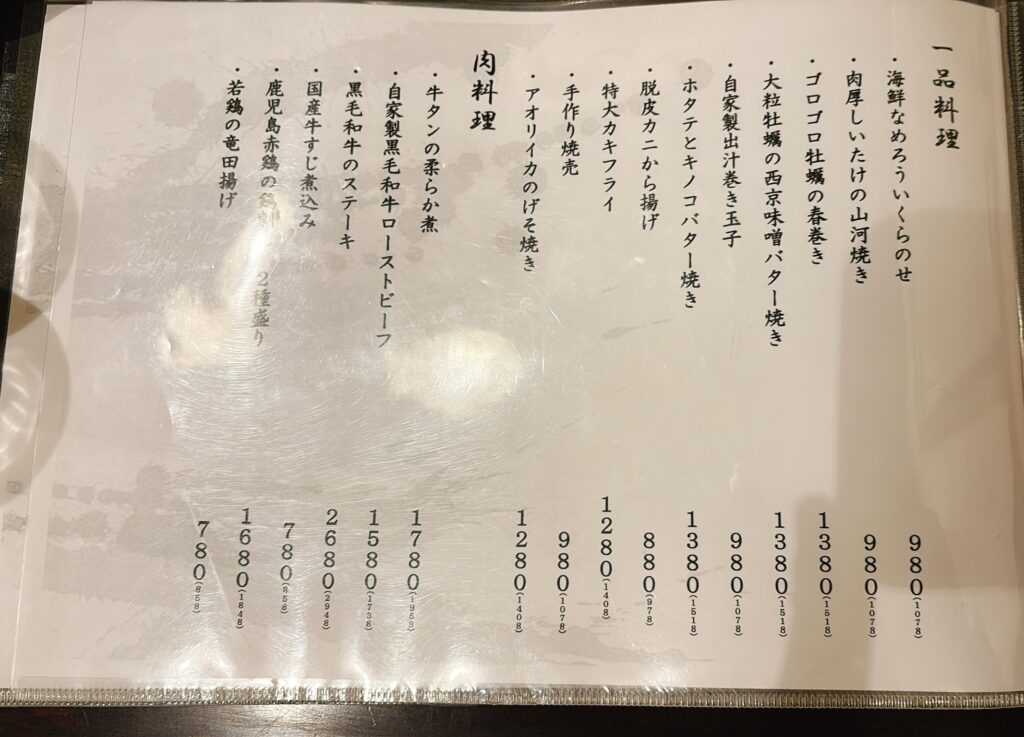 一品料理
・海鮮なめろういくらのせ 980(1078)
・肉厚しいたけの山河焼き 980(1078)
・ゴロゴロ牡蠣の春巻き 1380(1518)
・大粒牡蠣の西京味噌バター焼き 1380(1518)
・自家製出汁巻き玉子 980(1078)
・ホタテとキノコバター焼き 1380(1518)
・脱皮カニから揚げ 880(978)
・特大カキフライ 1280(1408)
・手作り焼売 980(1078)
・アオリイカのげそ焼き 1280(1408)
肉料理
・牛タンの柔らか煮 1780(1958)
・自家製黒毛和牛ローストビーフ 1580(1738)
・黒毛和牛のステーキ 2680(2948)
・国産牛すじ煮込み 780(858)
・鹿児島赤鶏の 2種盛り 1680(1848)
・若鶏の竜田揚げ 780(858)